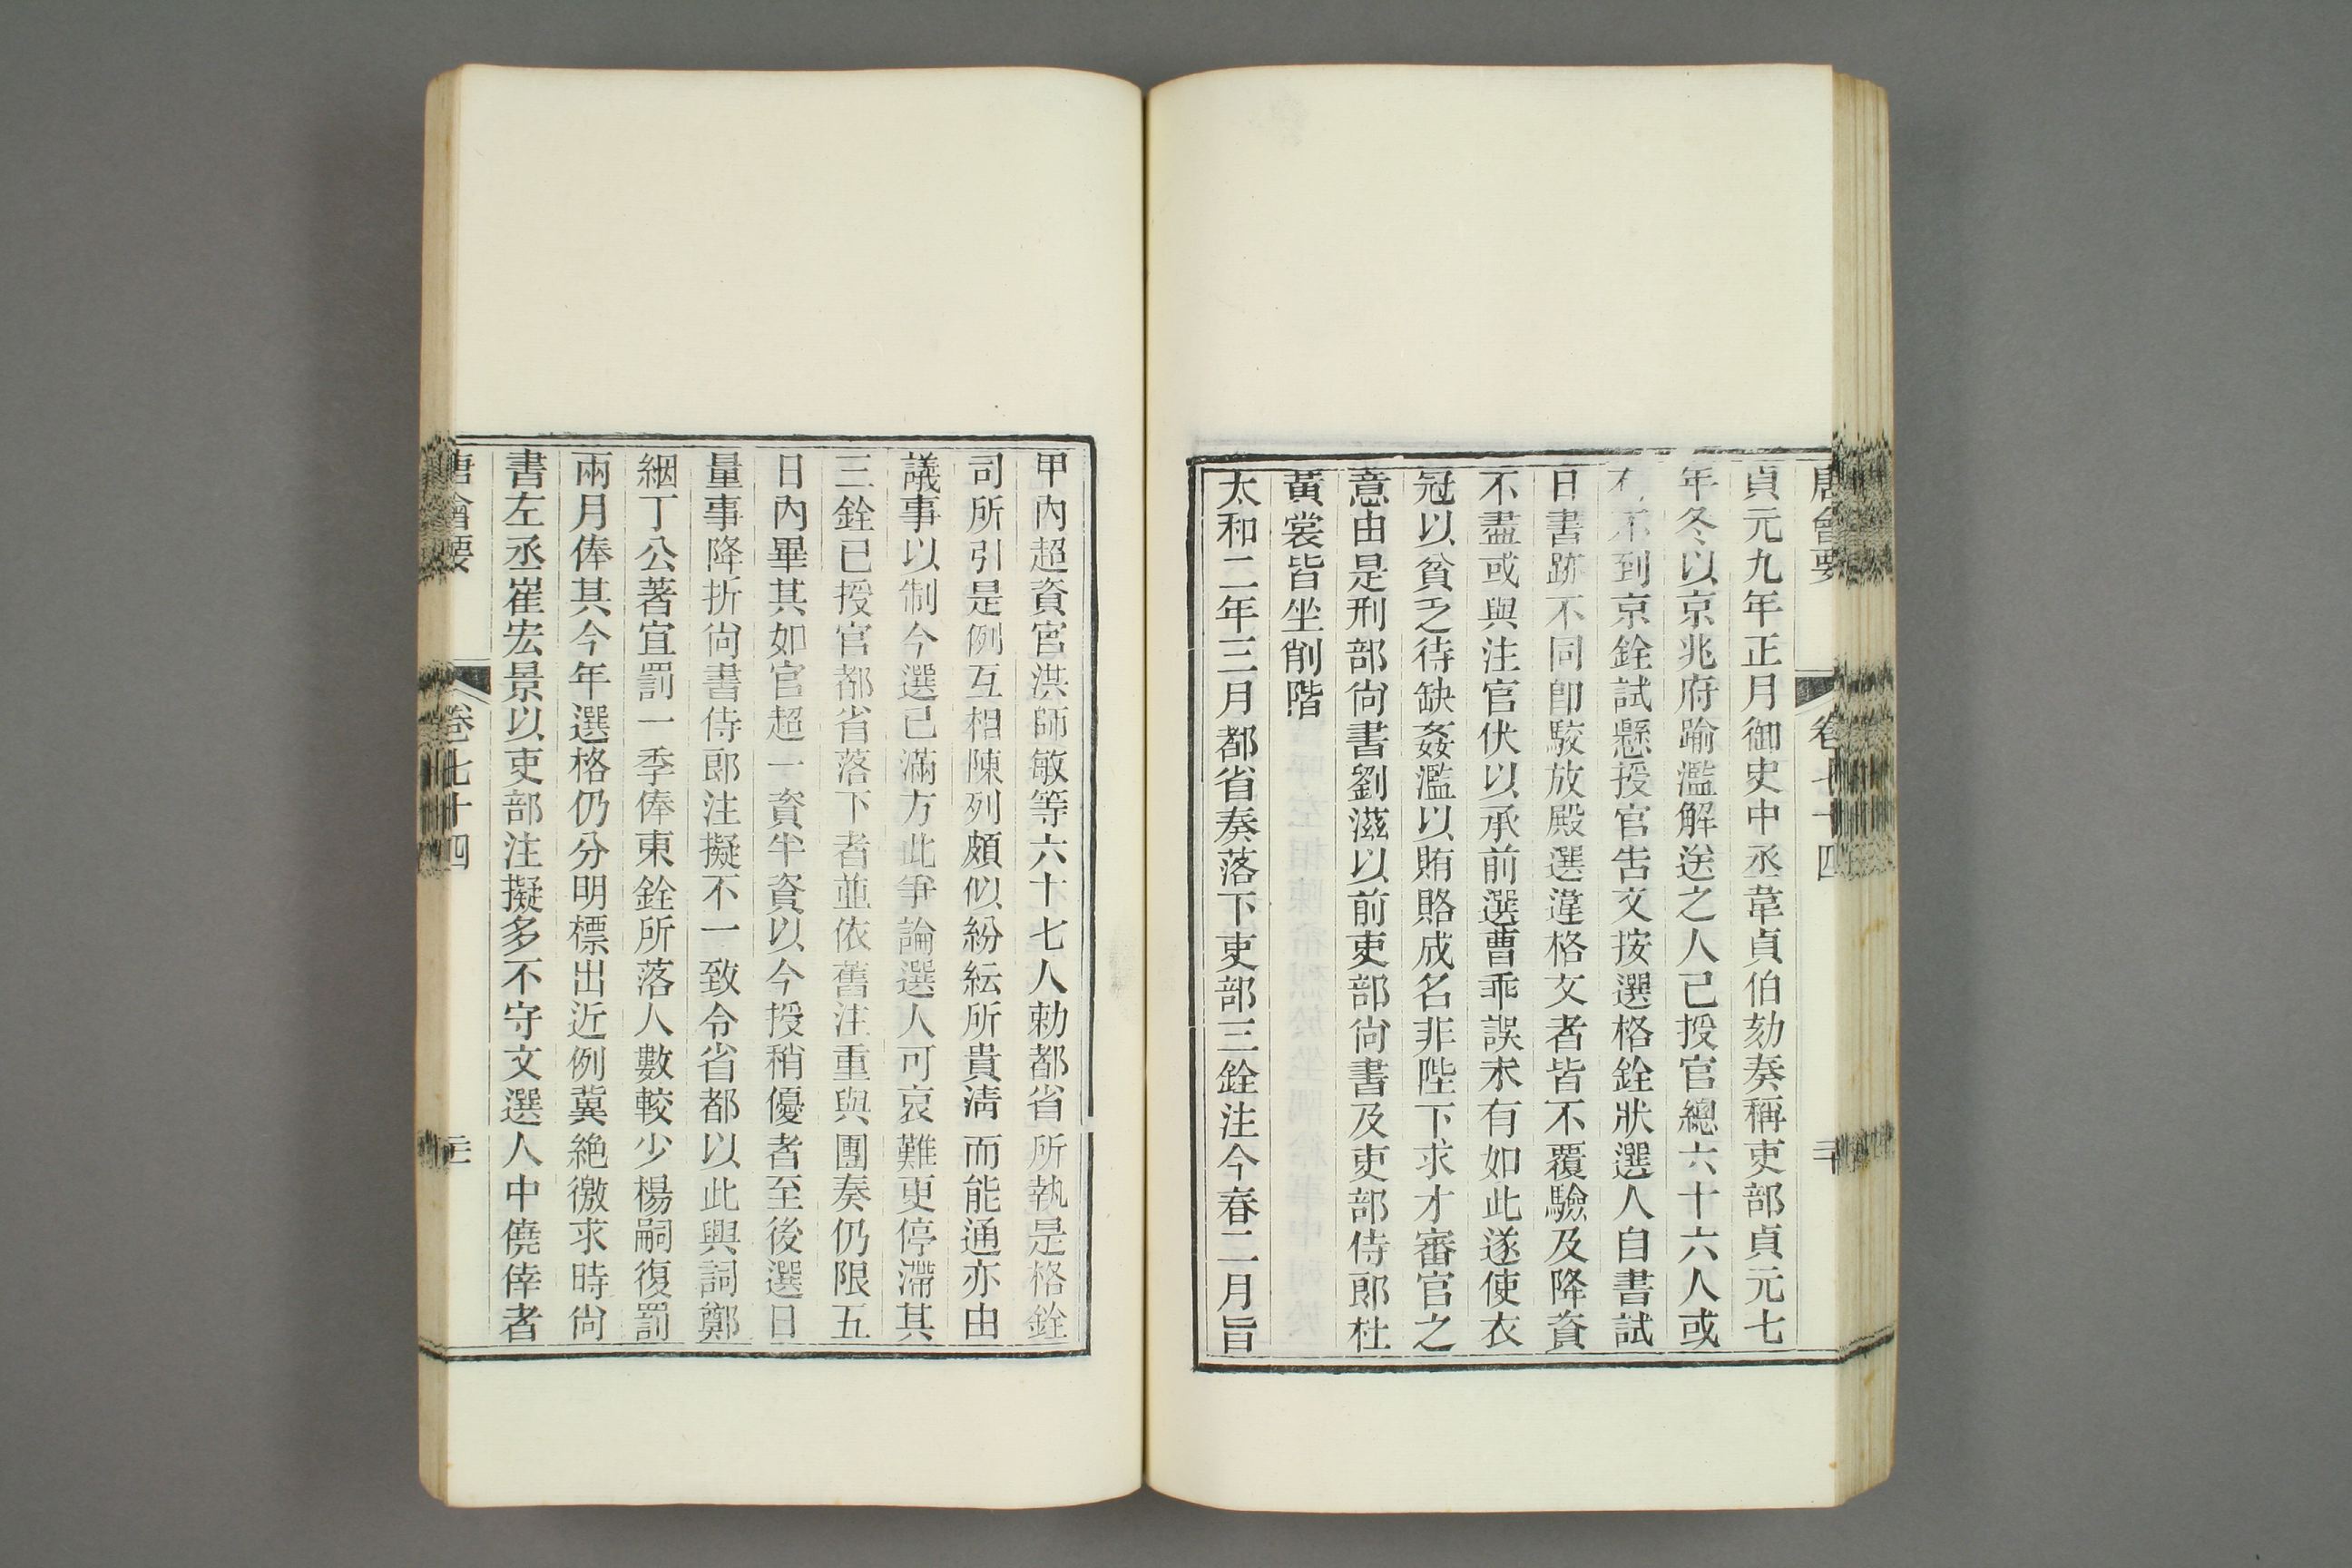 唐會要 卷七十四 二十
貞元九年正月御史中丞韋貞伯劾奏稱吏部貞元七
年冬以京兆府踰濫解送之人已授官總六十六人或
有不到京銓試懸授官告文按選格銓狀選人自書試
日書跡不同卽駮放殿選違格文者皆不覆驗及降資
不盡或與注官伏以承前選曹乖誤未有如此遂使衣
冠以貧乏待缺姦濫以賄賂成名非陛下求才審官之
意由是刑部尙書劉滋以前吏部尙書及吏部侍郎杜
黃裳皆坐削階
太和二年三月都省奏落下吏部三銓注今春二月旨
甲內超資官洪師敏等六十七人勅都省所執是格銓
司所引是例互相陳列頗似紛紜所貴淸而能通亦由
議事以制今選已滿方此爭論選人可哀難更停滯其
三銓已授官都省落下者並依舊注重與團奏仍限五
日內畢其如官超一資半資以今授稍優者至後選日
量事降折尙書侍郎注擬不一致令省都以此興詞鄭
絪丁公著宜罰一季俸東銓所落人數較少楊嗣復罰
兩月俸其今年選格仍分明標出近例冀絶徼求時尙
書左丞崔宏景以吏部注擬多不守文選人中僥倖者
唐會要 卷七十四